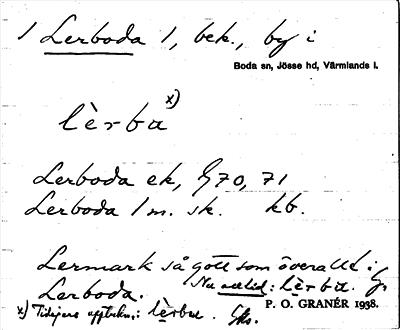 1 Lerboda 1, bek., by i
Boda sn, Jösse hd, Värmlands l.
lèrba x)
Lerboda ek, G70, 71
Lerboda 1 m. sk. kb.
Lermark så gott som överallt i
Lerboda. Nu alltid: lèrba.
P. O. GRANÉR 1938.
x) Tidigare uppteckn.: lèrba.